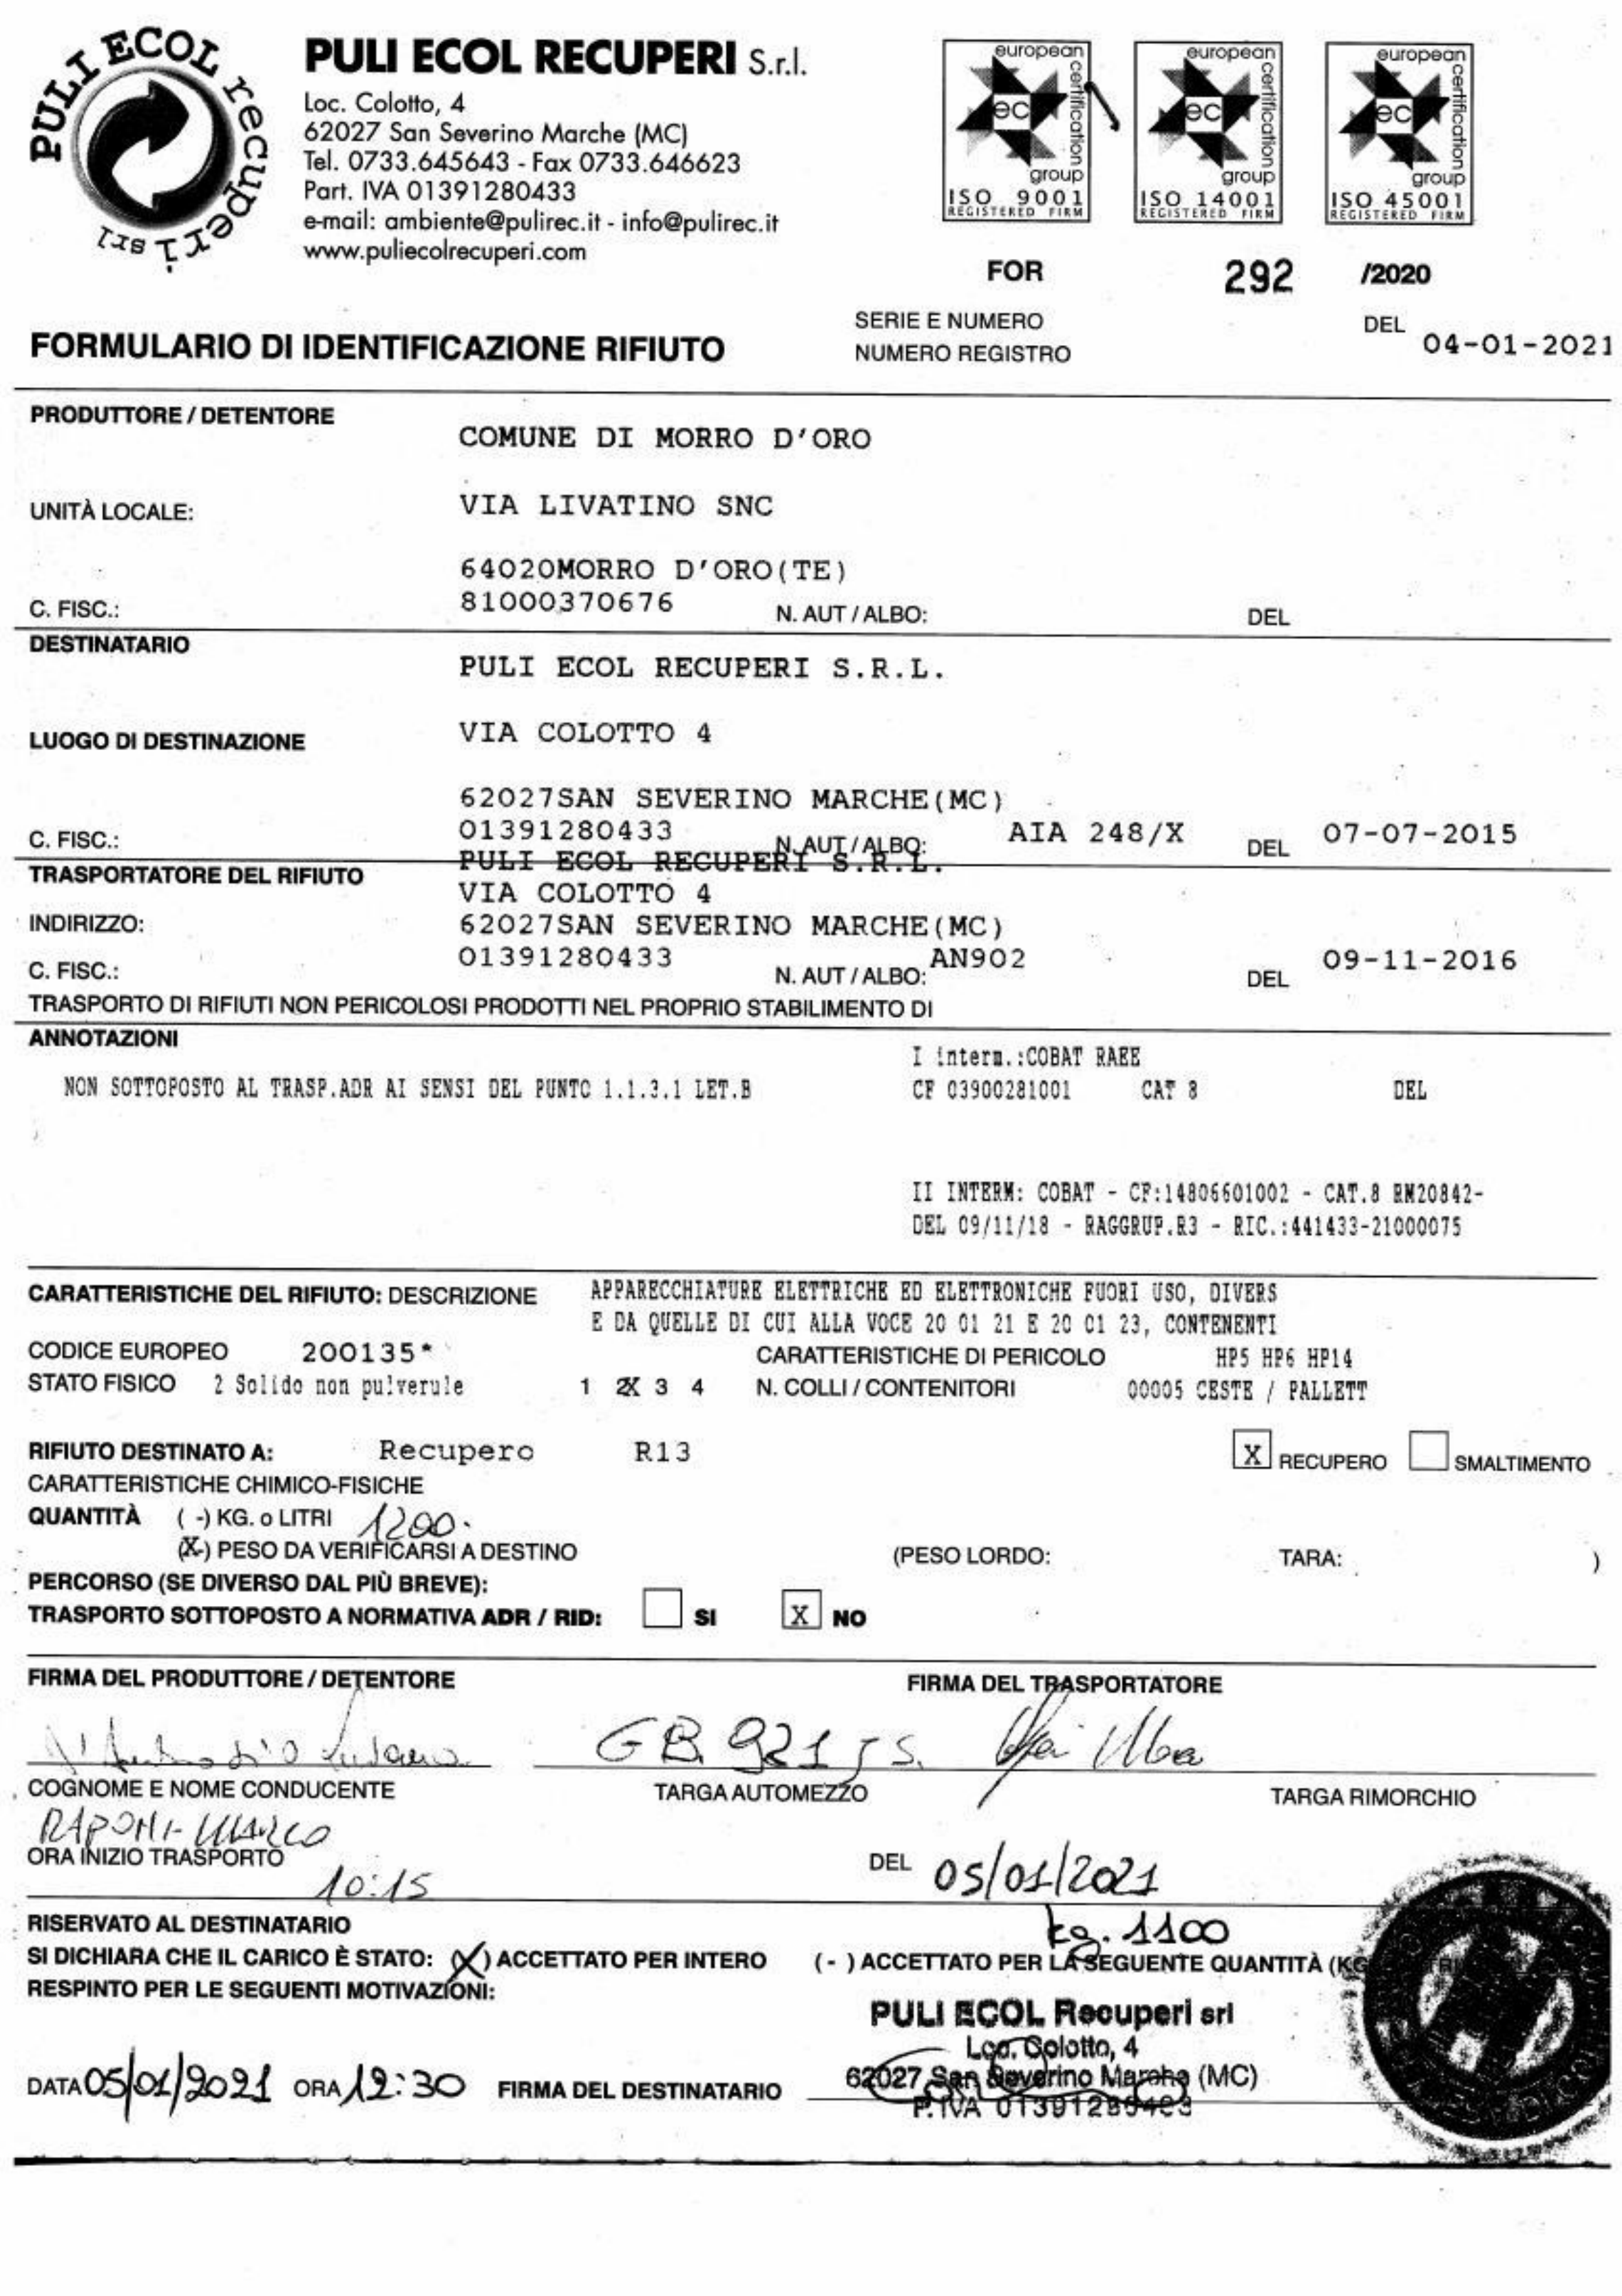 PULI ECOL recuperi srl
PULI ECOL RECUPERI S.r.l.
Loc. Colotto, 4
62027 San Severino Marche (MC)
Tel. 0733.645643 - Fax 0733.646623
Part. IVA 01391280433
e-mail: ambiente@pulirec.it - info@pulirec.it
www.puliecolrecuperi.com
european certification group
ec
ISO 9001
REGISTERED FIRM
european certification group
ec
ISO 14001
REGISTERED FIRM
european certification group
ec
ISO 45001
REGISTERED FIRM
FOR 292 /2020
SERIE E NUMERO DEL 04-01-2021
NUMERO REGISTRO
FORMULARIO DI IDENTIFICAZIONE RIFIUTO
PRODUTTORE / DETENTORE
COMUNE DI MORRO D'ORO
UNITÀ LOCALE: VIA LIVATINO SNC
64020MORRO D'ORO(TE)
C. FISC.: 81000370676 N. AUT / ALBO: DEL
DESTINATARIO
PULI ECOL RECUPERI S.R.L.
LUOGO DI DESTINAZIONE VIA COLOTTO 4
62027SAN SEVERINO MARCHE(MC)
C. FISC.: 01391280433 N. AUT / ALBO: AIA 248/X DEL 07-07-2015
PULI ECOL RECUPERI S.R.L.
TRASPORTATORE DEL RIFIUTO
VIA COLOTTO 4
INDIRIZZO: 62027SAN SEVERINO MARCHE(MC)
C. FISC.: 01391280433 N. AUT / ALBO: AN902 DEL 09-11-2016
TRASPORTO DI RIFIUTI NON PERICOLOSI PRODOTTI NEL PROPRIO STABILIMENTO DI
ANNOTAZIONI
I interm.:COBAT RAEE
NON SOTTOPOSTO AL TRASP.ADR AI SENSI DEL PUNTO 1.1.3.1 LET.B
CF 03900281001 CAT 8 DEL
II INTERM: COBAT - CF:14806601002 - CAT.8 RM20842-
DEL 09/11/18 - RAGGRUP.R3 - RIC.:441433-21000075
CARATTERISTICHE DEL RIFIUTO: DESCRIZIONE APPARECCHIATURE ELETTRICHE ED ELETTRONICHE FUORI USO, DIVERS
E DA QUELLE DI CUI ALLA VOCE 20 01 21 E 20 01 23, CONTENENTI
CODICE EUROPEO 200135* CARATTERISTICHE DI PERICOLO HP5 HP6 HP14
STATO FISICO 2 Solido non pulverule 1 2X 3 4 N. COLLI / CONTENITORI 00005 CESTE / PALLETT
RIFIUTO DESTINATO A: Recupero R13 X RECUPERO SMALTIMENTO
CARATTERISTICHE CHIMICO-FISICHE
QUANTITÀ ( -) KG. o LITRI 1200.
(X-) PESO DA VERIFICARSI A DESTINO (PESO LORDO: TARA: )
PERCORSO (SE DIVERSO DAL PIÙ BREVE):
TRASPORTO SOTTOPOSTO A NORMATIVA ADR / RID: SI X NO
FIRMA DEL PRODUTTORE / DETENTORE FIRMA DEL TRASPORTATORE
GB 921 JS.
COGNOME E NOME CONDUCENTE TARGA AUTOMEZZO TARGA RIMORCHIO
RAPONI MARCO
ORA INIZIO TRASPORTO 10:15 DEL 05/01/2021
RISERVATO AL DESTINATARIO kg. 1100
SI DICHIARA CHE IL CARICO È STATO: (X) ACCETTATO PER INTERO ( - ) ACCETTATO PER LA SEGUENTE QUANTITÀ (KG
RESPINTO PER LE SEGUENTI MOTIVAZIONI:
PULI ECOL Recuperi srl
Loc. Colotto, 4
62027 San Severino Marche (MC)
P.IVA 01391280433
DATA 05/01/2021 ORA 12:30 FIRMA DEL DESTINATARIO